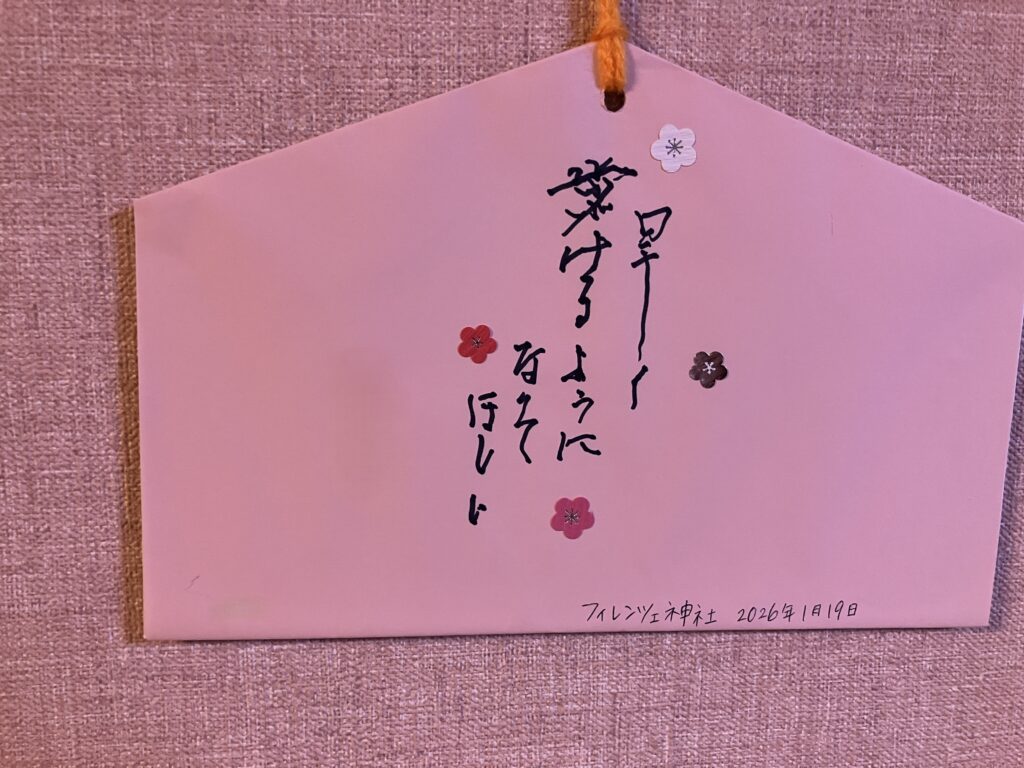 早く
けるように
なって
ほしい
フィレンツェ神社 2026年1月19日